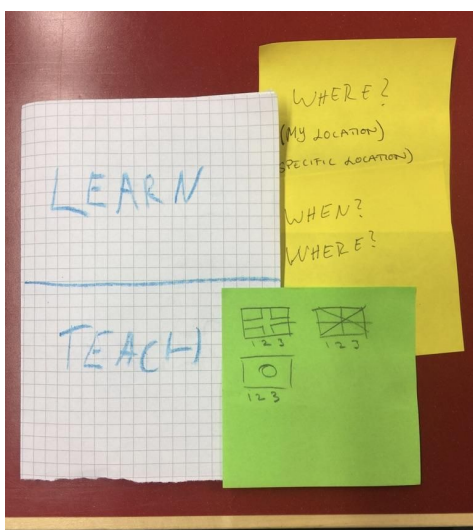 LEARN
TEACH
WHERE?
(MY LOCATION)
SPECIFIC LOCATION)
WHEN?
WHERE?
1 2 3
1 2 3
1 2 3